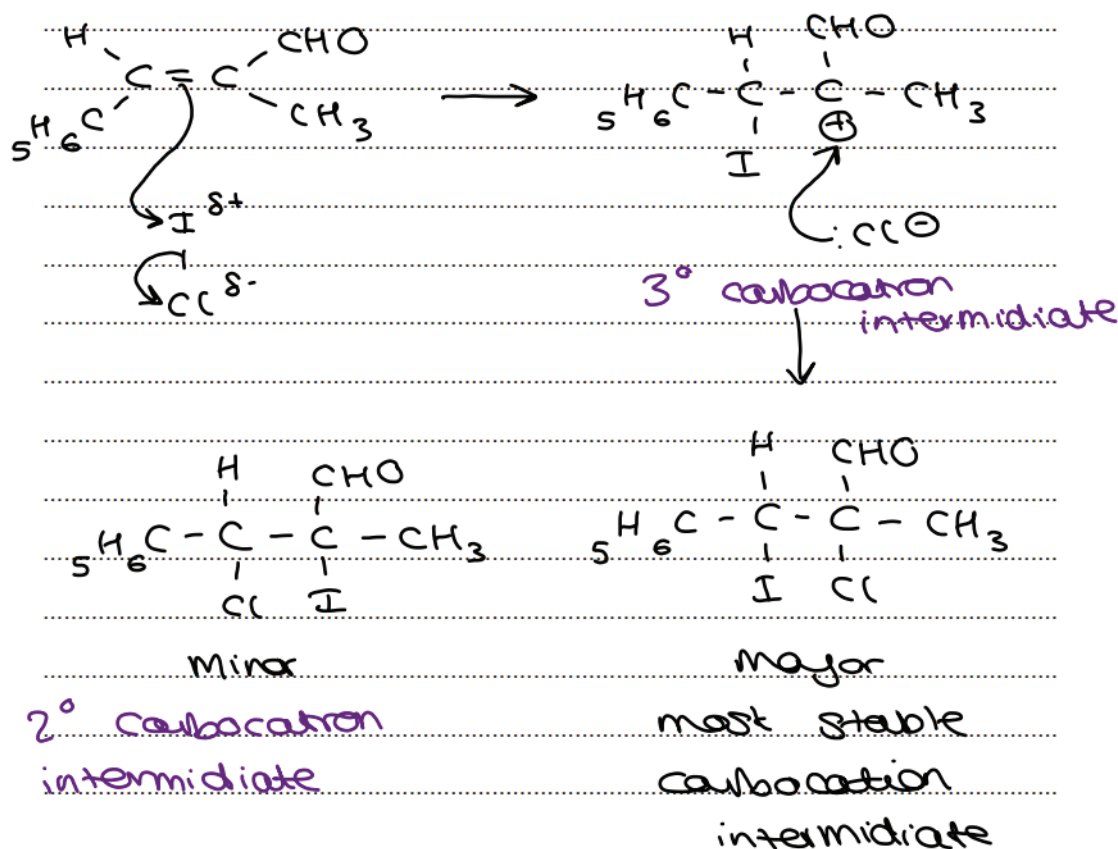 H CHO
C = C
5H6C CH3
I δ+
Cl δ-
H CHO
5H6C - C - C - CH3
I ⊕
:Cl⊖
3° carbocation
intermidiate
H CHO
5H6C - C - C - CH3
Cl I
minor
2° carbocation
intermidiate
H CHO
5H6C - C - C - CH3
I Cl
major
most stable
carbocation
intermidiate